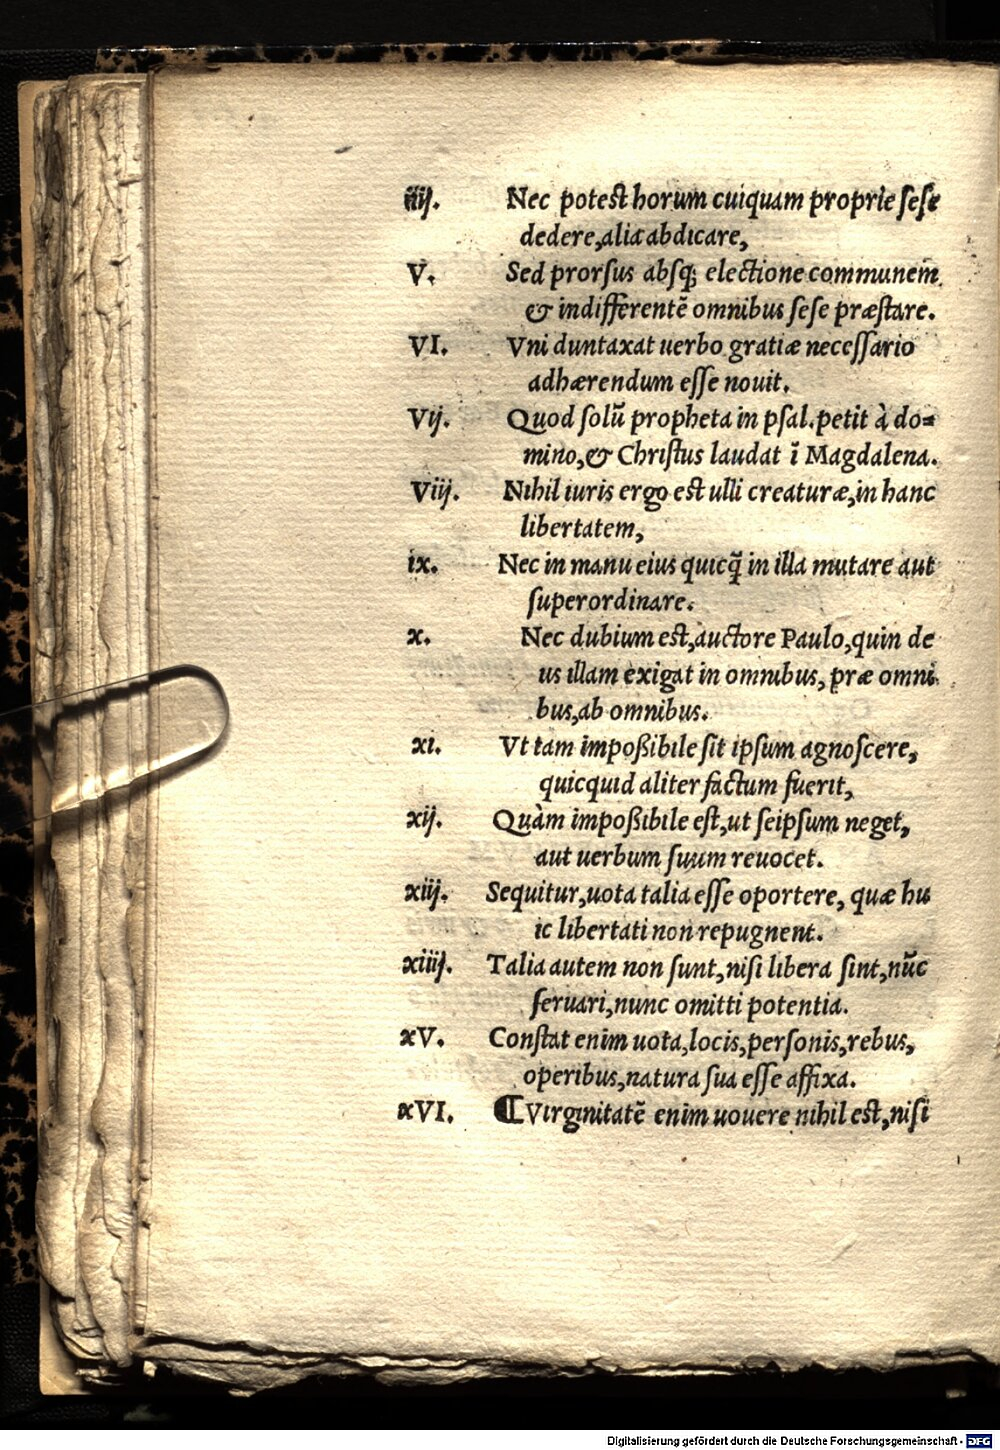 iiij. Nec potest horum cuiquam proprie sese
dedere, alia abdicare,
V. Sed prorsus absq; electione communem
& indifferentē omnibus sese præstare.
VI. Vni duntaxat uerbo gratiæ necessario
adhærendum esse nouit.
Vij. Quod solū propheta in psal. petit à do=
mino, & Christus laudat ī Magdalena.
Viij. Nihil iuris ergo est ulli creaturæ, in hanc
libertatem,
ix. Nec in manu eius quicq̃ in illa mutare aut
superordinare.
x. Nec dubium est, auctore Paulo, quin de
us illam exigat in omnibus, præ omni
bus, ab omnibus.
xi. Vt tam impoßibile sit ipsum agnoscere,
quicquid aliter factum fuerit,
xij. Quàm impoßibile est, ut seipsum neget,
aut uerbum suum reuocet.
xiij. Sequitur, uota talia esse oportere, quæ hu
ic libertati non repugnent.
xiiij. Talia autem non sunt, nisi libera sint, nūc
seruari, nunc omitti potentia.
xV. Constat enim uota, locis, personis, rebus,
operibus, natura sua esse affixa.
xVI. ¶ Virginitatē enim uouere nihil est, nisi
Digitalisierung gefördert durch die Deutsche Forschungsgemeinschaft - DFG